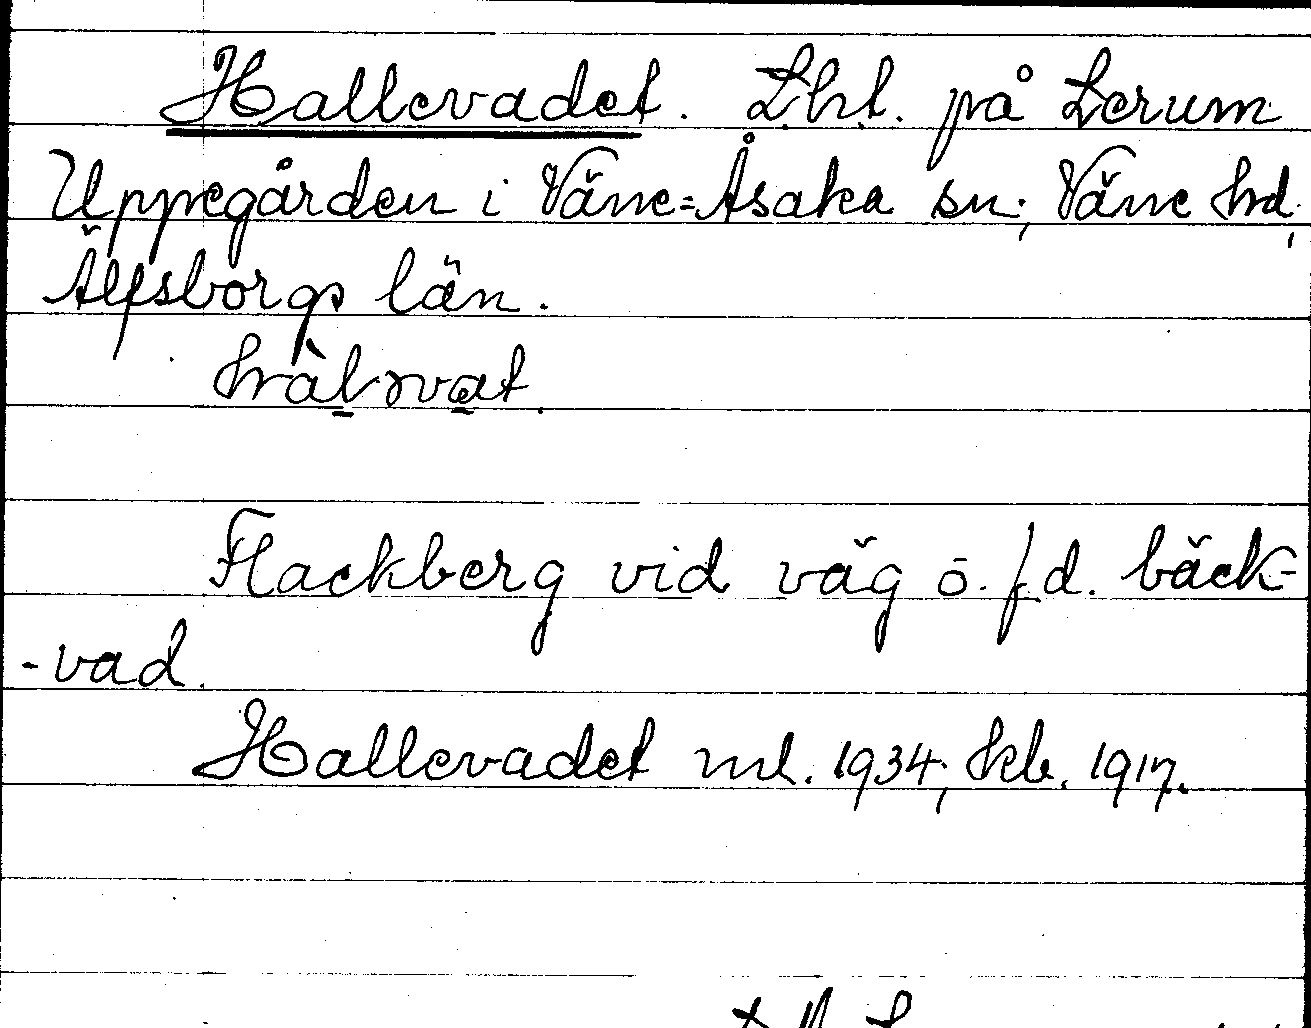 Hallevadet. Lht. på Lerum
Uppegården i Väne=Åsaka sn., Väne hd,
Älfsborgs län.
Flackberg vid väg o. f.d. bäck-
-vad.
Hallevadet ml. 1934; 1917.